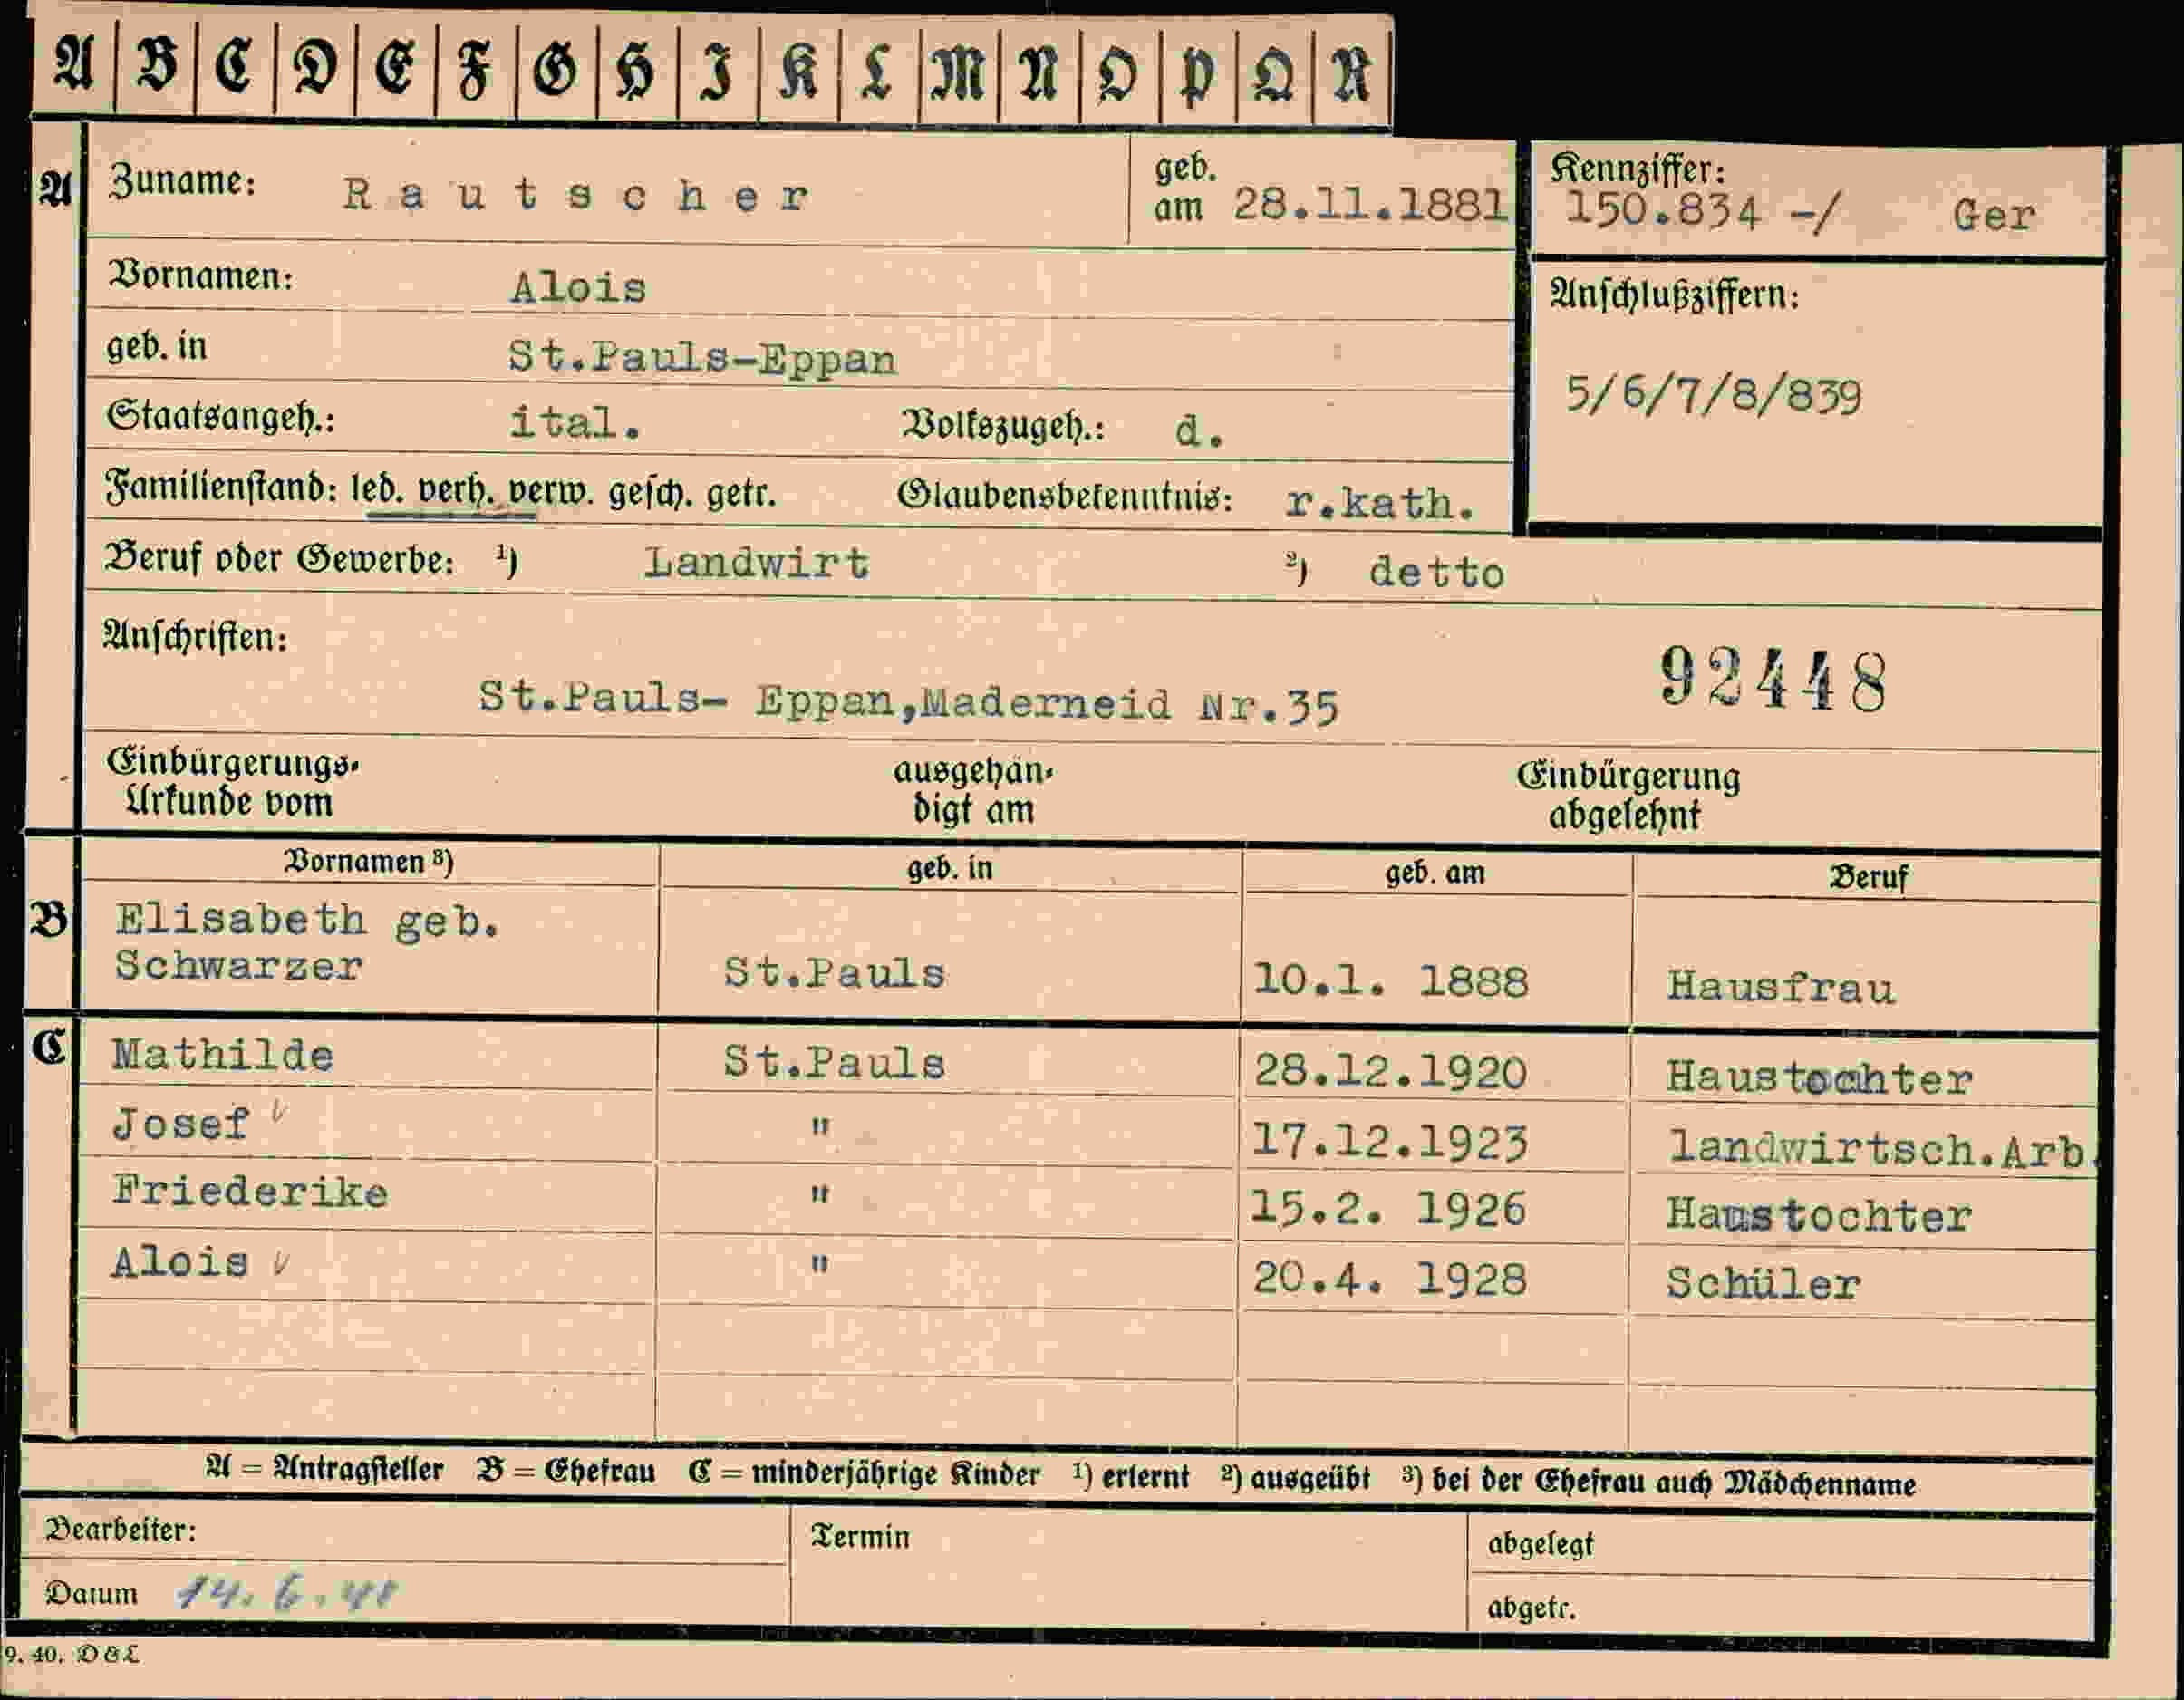 A B C D E F G H I K L M N O P Q R
A Zuname: Rautscher geb. am 28.11.1881 Kennziffer: 150.834 -/ Ger
Vornamen: Alois Anschlußziffern:
geb. in St.Pauls-Eppan 5/6/7/8/839
Staatsangeh.: ital. Volkszugeh.: d.
Familienstand: led. verh. verw. gesch. getr. Glaubensbekenntnis: r.kath.
Beruf oder Gewerbe: ¹) Landwirt ²) detto
Anschriften: 92448
St.Pauls- Eppan,Maderneid Nr.35
Einbürgerungs- ausgehän- Einbürgerung
Urkunde vom digt am abgelehnt
Vornamen ³) geb. in geb. am Beruf
B Elisabeth geb.
Schwarzer St.Pauls 10.1. 1888 Hausfrau
C Mathilde St.Pauls 28.12.1920 Haustochter
Josef " 17.12.1923 landwirtsch.Arb.
Friederike " 15.2. 1926 Haustochter
Alois " 20.4. 1928 Schüler
A = Antragsteller B = Ehefrau C = minderjährige Kinder ¹) erlernt ²) ausgeübt ³) bei der Ehefrau auch Mädchenname
Bearbeiter: Termin abgelegt
Datum 14.6.41 abgetr.
9. 40. D & L